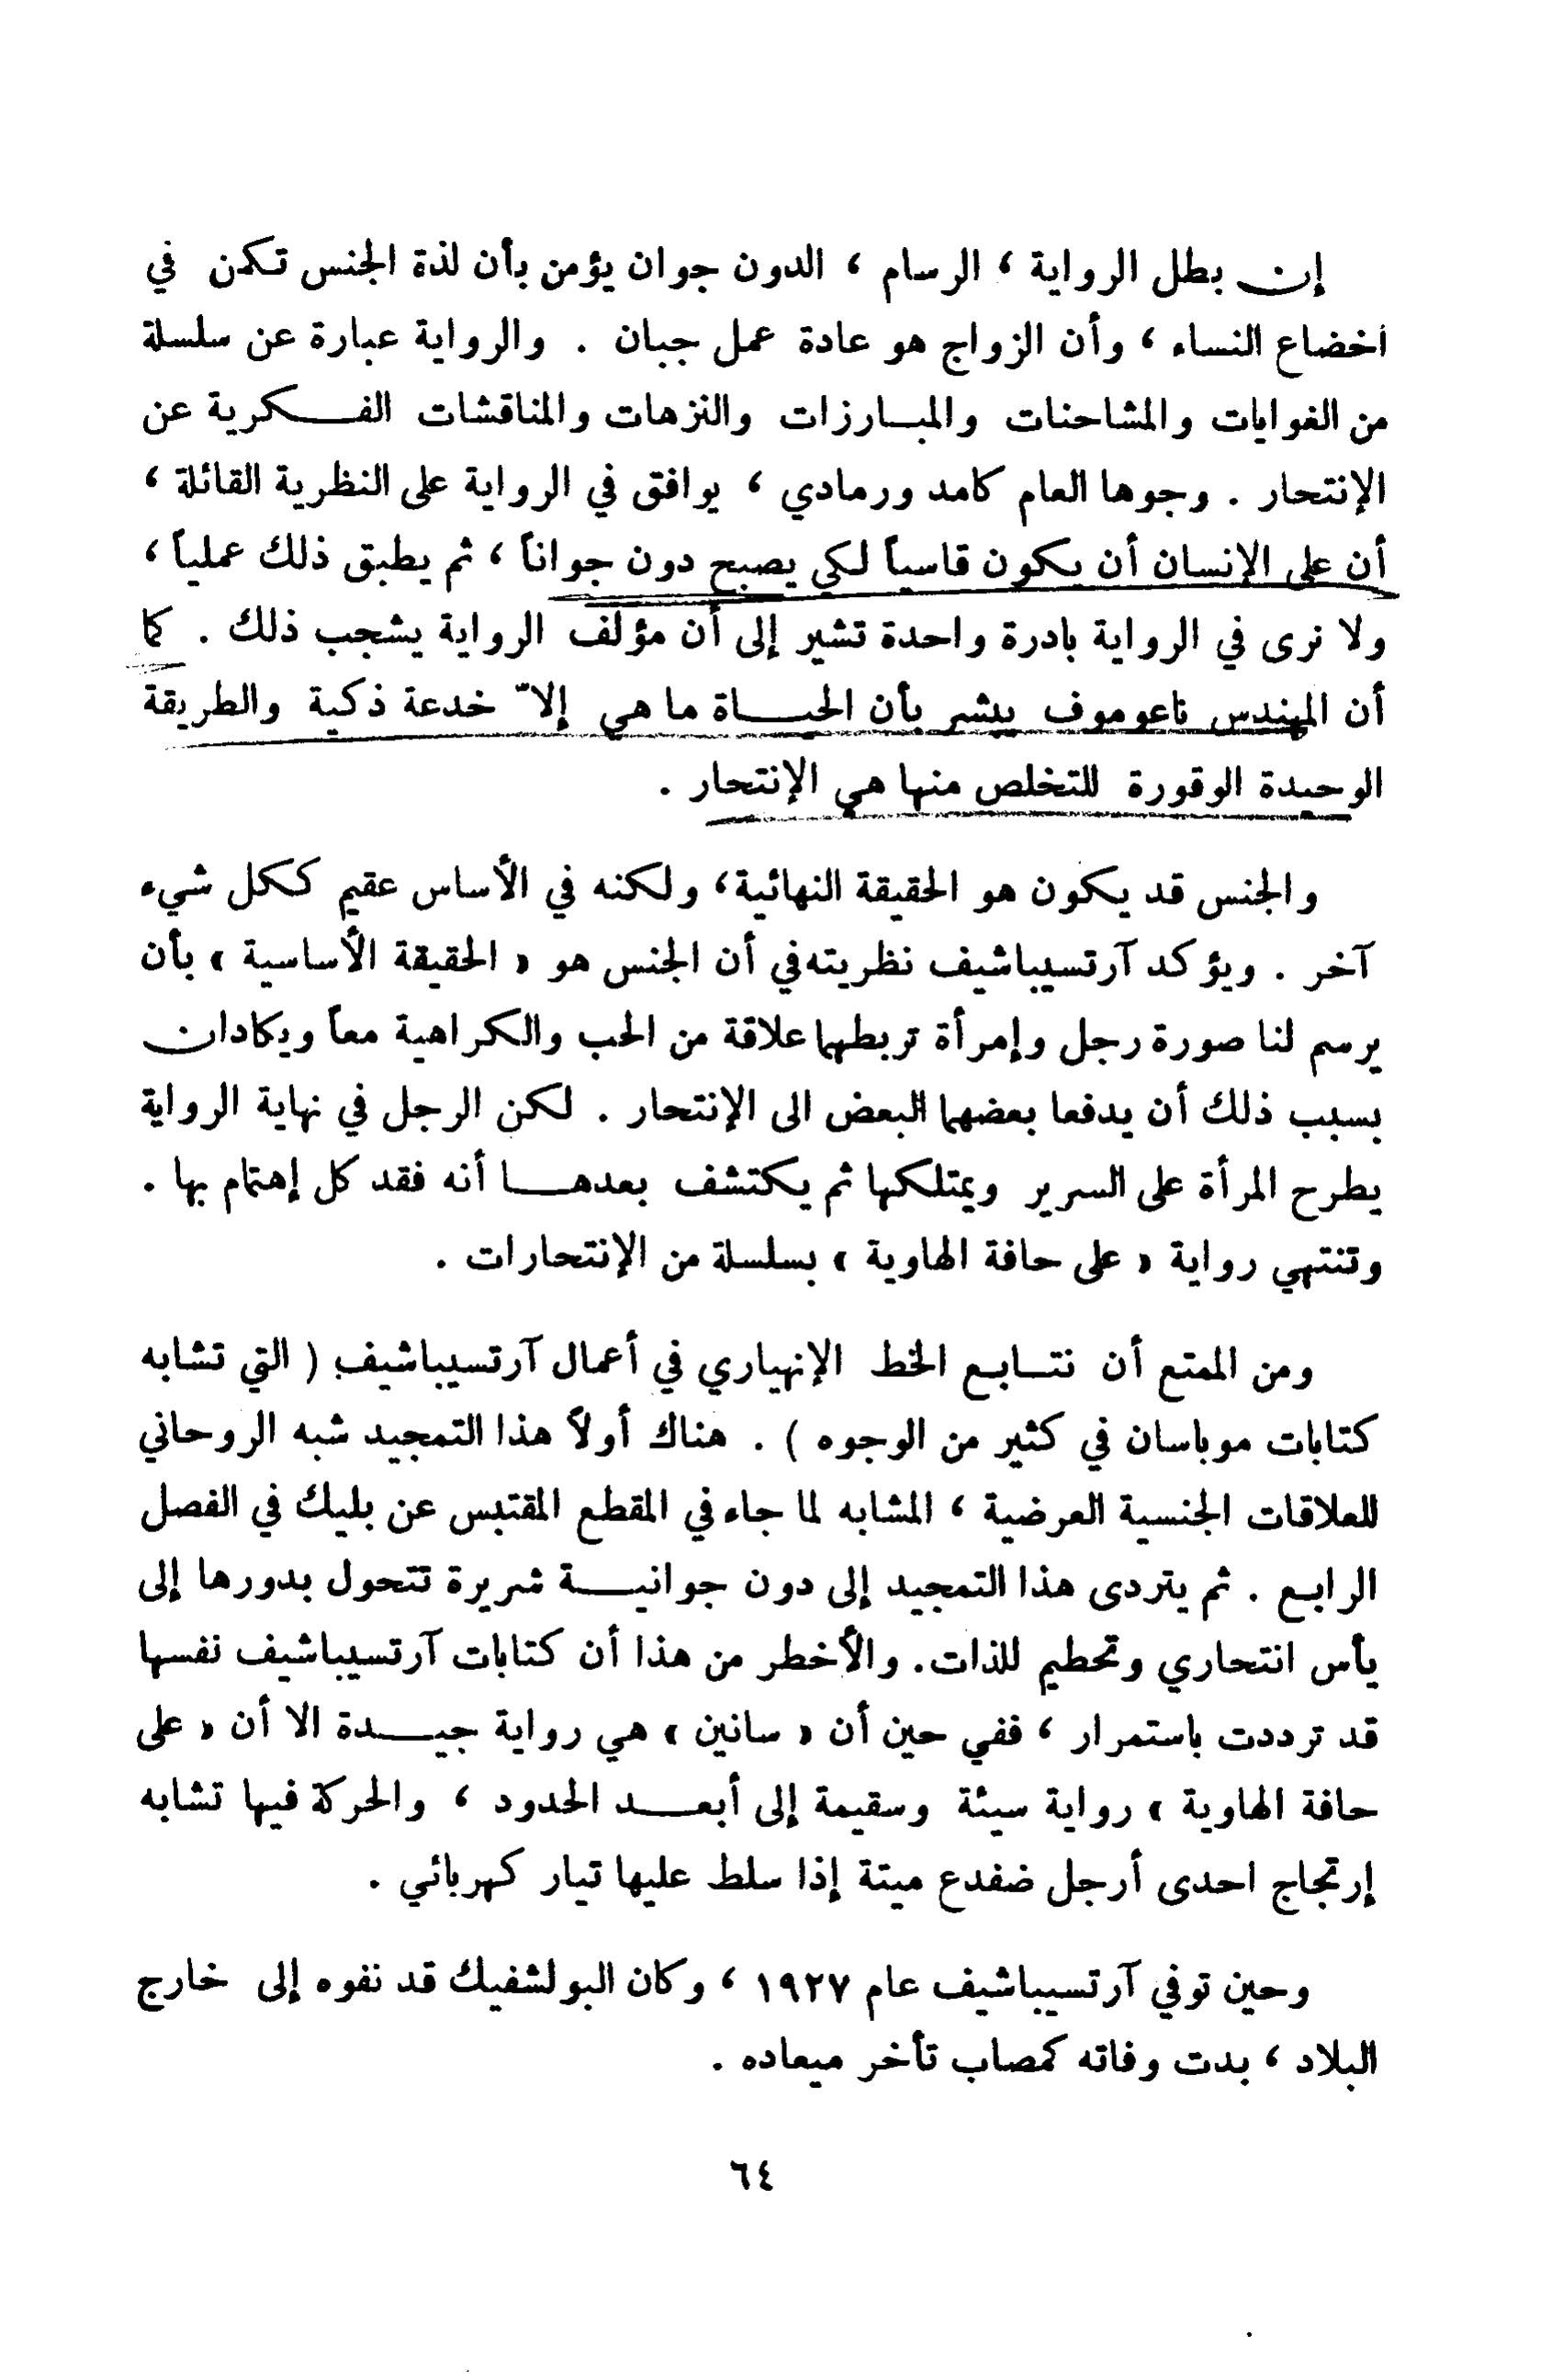 إن بطل الرواية ، الرسام ، الدون جوان يؤمن بأن لذة الجنس تكمن في
اخضاع النساء ، وأن الزواج هو عادة عمل جبان . والرواية عبارة عن سلسلة
من الغوايات والمشاحنات والمبارزات والنزهات والمناقشات الفكرية عن
الإنتحار . وجوها العام كامد ورمادي ، يوافق في الرواية على النظرية القائلة ،
أن على الإنسان أن يكون قاسياً لكي يصبح دون جواناً ، ثم يطبق ذلك عملياً ،
ولا نرى في الرواية بادرة واحدة تشير إلى أن مؤلف الرواية يشجب ذلك . كما
أن المهندس ناعوموف يبشر بأن الحياة ما هي إلاّ خدعة ذكية والطريقة
الوحيدة الوقورة للتخلص منها هي الإنتحار .
والجنس قد يكون هو الحقيقة النهائية ، ولكنه في الأساس عقيم ككل شيء
آخر . ويؤكد آرتسيباشيف نظريته في أن الجنس هو « الحقيقة الأساسية » بأن
يرسم لنا صورة رجل وإمرأة تربطهما علاقة من الحب والكراهية معاً ويكادان
بسبب ذلك أن يدفعا بعضهما البعض الى الإنتحار . لكن الرجل في نهاية الرواية
يطرح المرأة على السرير ويمتلكها ثم يكتشف بعدها أنه فقد كل إهتمام بها .
وتنتهي رواية « على حافة الهاوية » بسلسلة من الإنتحارات .
ومن الممتع أن نتابع الخط الإنهياري في أعمال آرتسيباشيف ( التي تشابه
كتابات موباسان في كثير من الوجوه ) . هناك أولاً هذا التمجيد شبه الروحاني
للعلاقات الجنسية العرضية ، المشابه لما جاء في المقطع المقتبس عن بليك في الفصل
الرابع . ثم يتردى هذا التمجيد إلى دون جوانية شريرة تتحول بدورها إلى
يأس انتحاري وتحطيم للذات . والأخطر من هذا أن كتابات آرتسيباشيف نفسها
قد ترددت باستمرار ، ففي حين أن « سانين » هي رواية جيدة الا أن « على
حافة الهاوية » رواية سيئة وسقيمة إلى أبعد الحدود ، والحركة فيها تشابه
إرتجاج احدى أرجل ضفدع ميتة إذا سلط عليها تيار كهربائي .
وحين توفي آرتسيباشيف عام ١٩٢٧ ، وكان البولشفيك قد نفوه إلى خارج
البلاد ، بدت وفاته كمصاب تأخر ميعاده .
٦٤